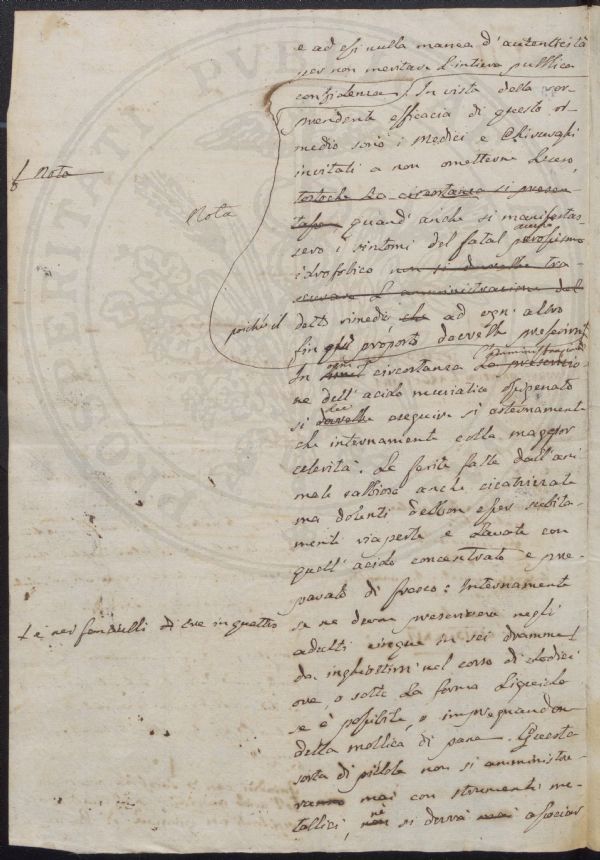 e ad essi nulla manca d'autenticità
per non meritare l'intiera pubblica
confidenza. In vista della sor-
prendente efficacia di questo ri-
medio sono i Medici e Chirurghi
invitati a non ometterne l'uso
tostoche la circostanza si presen-
tasse quand'anche si manifestas-
sero i sintomi del fatal parosismo
anche
idrofobico non si dovrebbe tra-
scurare l'amministrazione del
detto rimedio che ad ogni altro
fin quì proposto dovrebbe preferirsi
In ogni circostanza la prescrizio-
l'amministrazione
ne dell'acido muriatico ossigenato
si dovrebbe eseguire sì esternamente
dee
che internamente colla maggior
celerità. Le ferite fatte dall'ani
male rabbioso anche cicatrizzate
ma dolenti debbon esser subita-
mente riaperte e lavate con
quell'acido concentrato e pre-
parato di fresco: Internamente
se ne devon prescrivere negli
adulti cinque in sei dramme
da inghiottirsi nel corso di dodici
ore, o sotto la forma liquida
se è possibile, o impregnandone
della mollica di pane. Questa
sorta di pillole non si amministre-
ranno mai con strumenti me-
tallici, nè non si dovrà mai associar
f Nota
Nota
poichè il
+ e nei fanciulli di tre in quattro
PVB